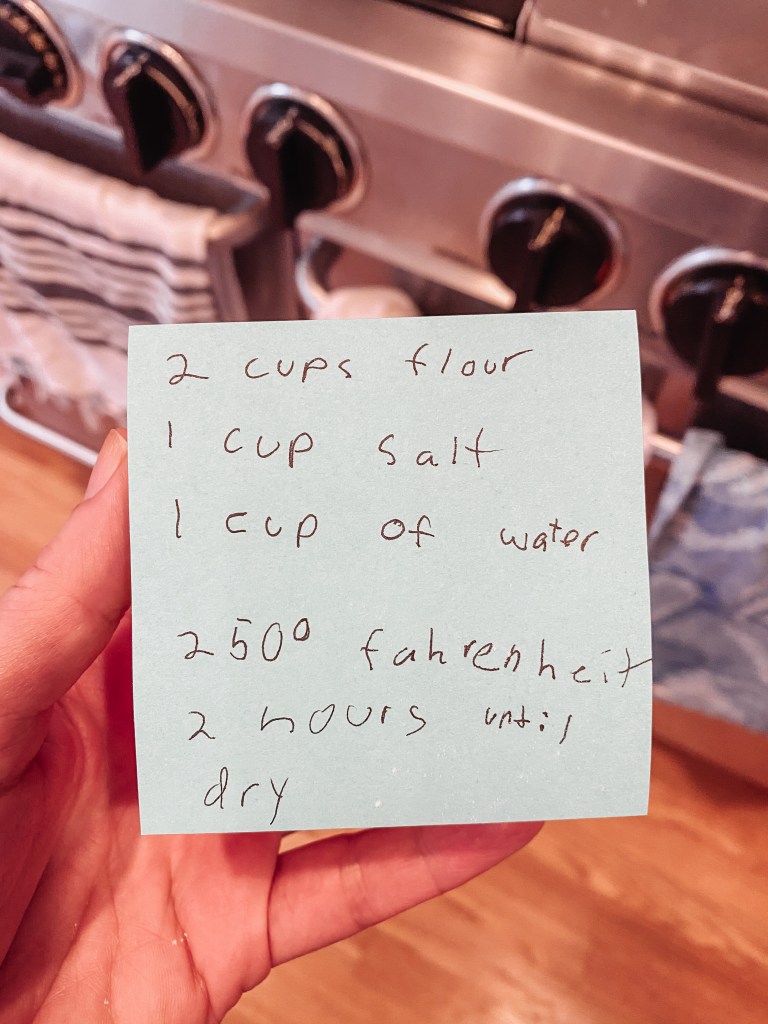 2 cups flour
1 cup salt
1 cup of water
250° fahrenheit
2 hours until
dry